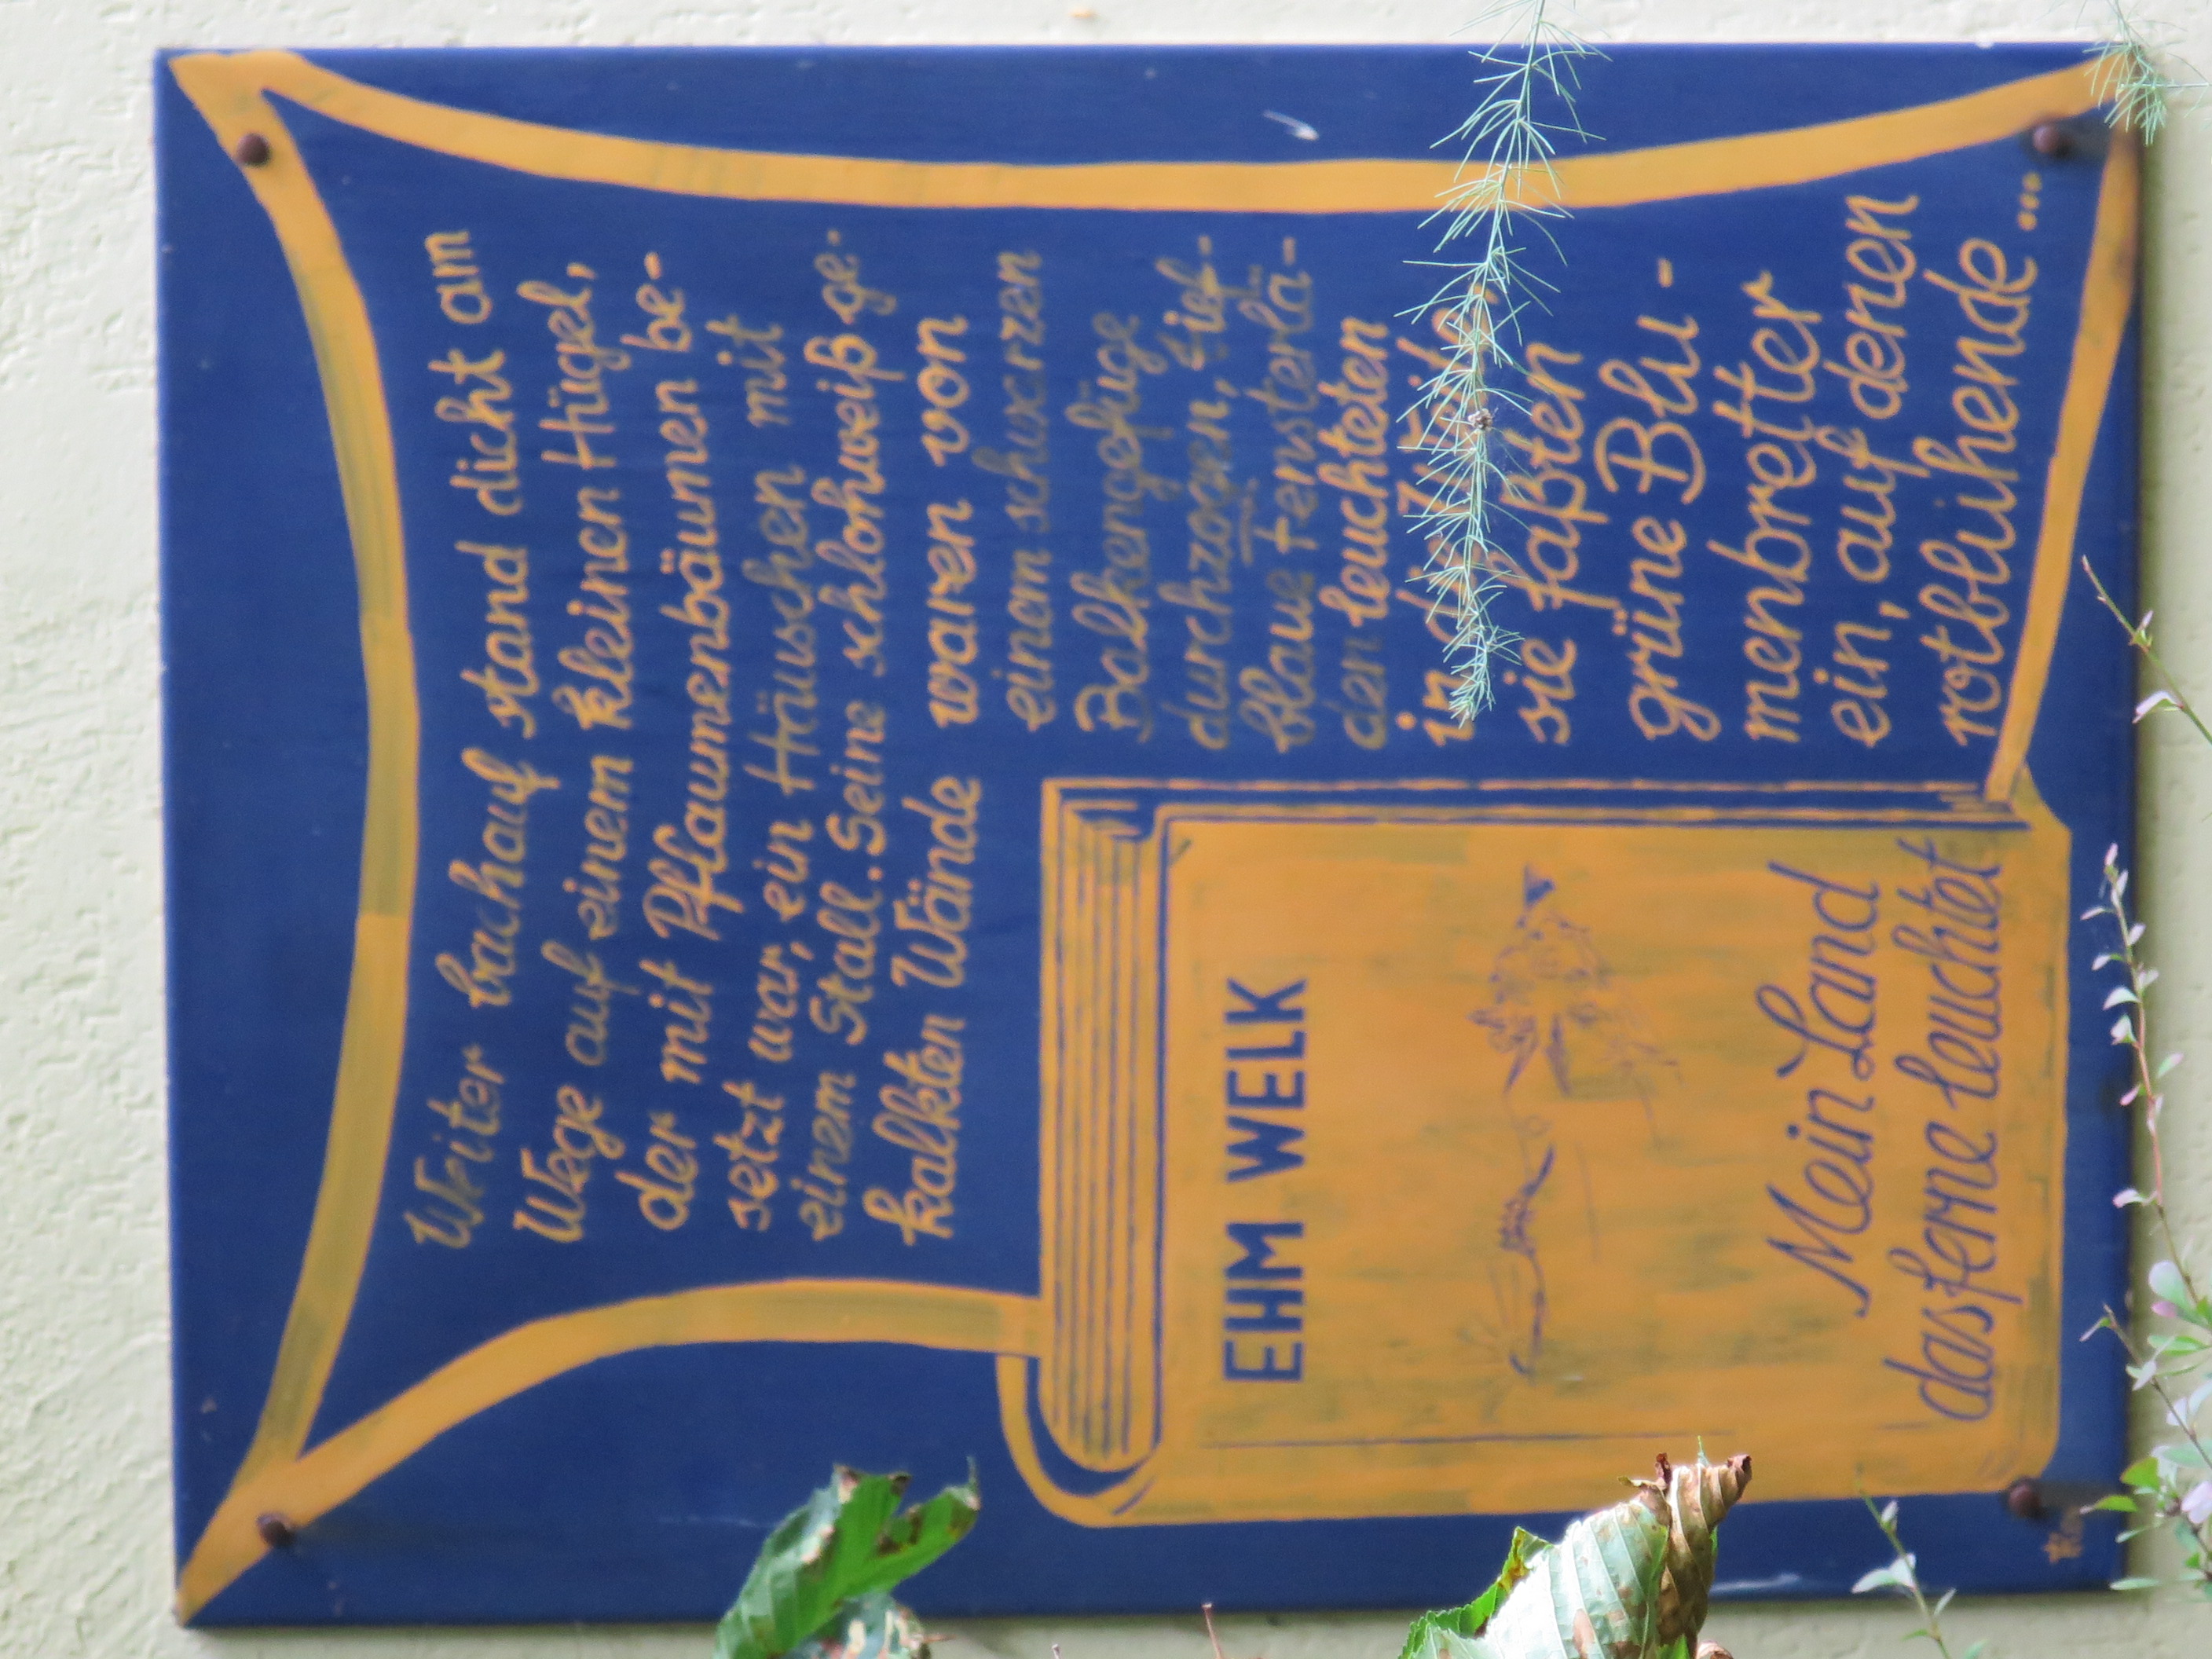 Weiter bachauf stand dicht am
Wege auf einem kleinen Hügel,
der mit Pflaumenbäumen be-
setzt war, ein Häuschen mit
einem Stall. Seine schlohweiß ge-
kalkten Wände waren von
einem schwarzen
Balkengefüge
durchzogen, tief-
blaue Fensterlä-
den leuchteten
in der
sie faßten
grüne Blu-
menbretter
ein, auf denen
rotblühende...
EHM WELK
Mein Land
das ferne leuchtet